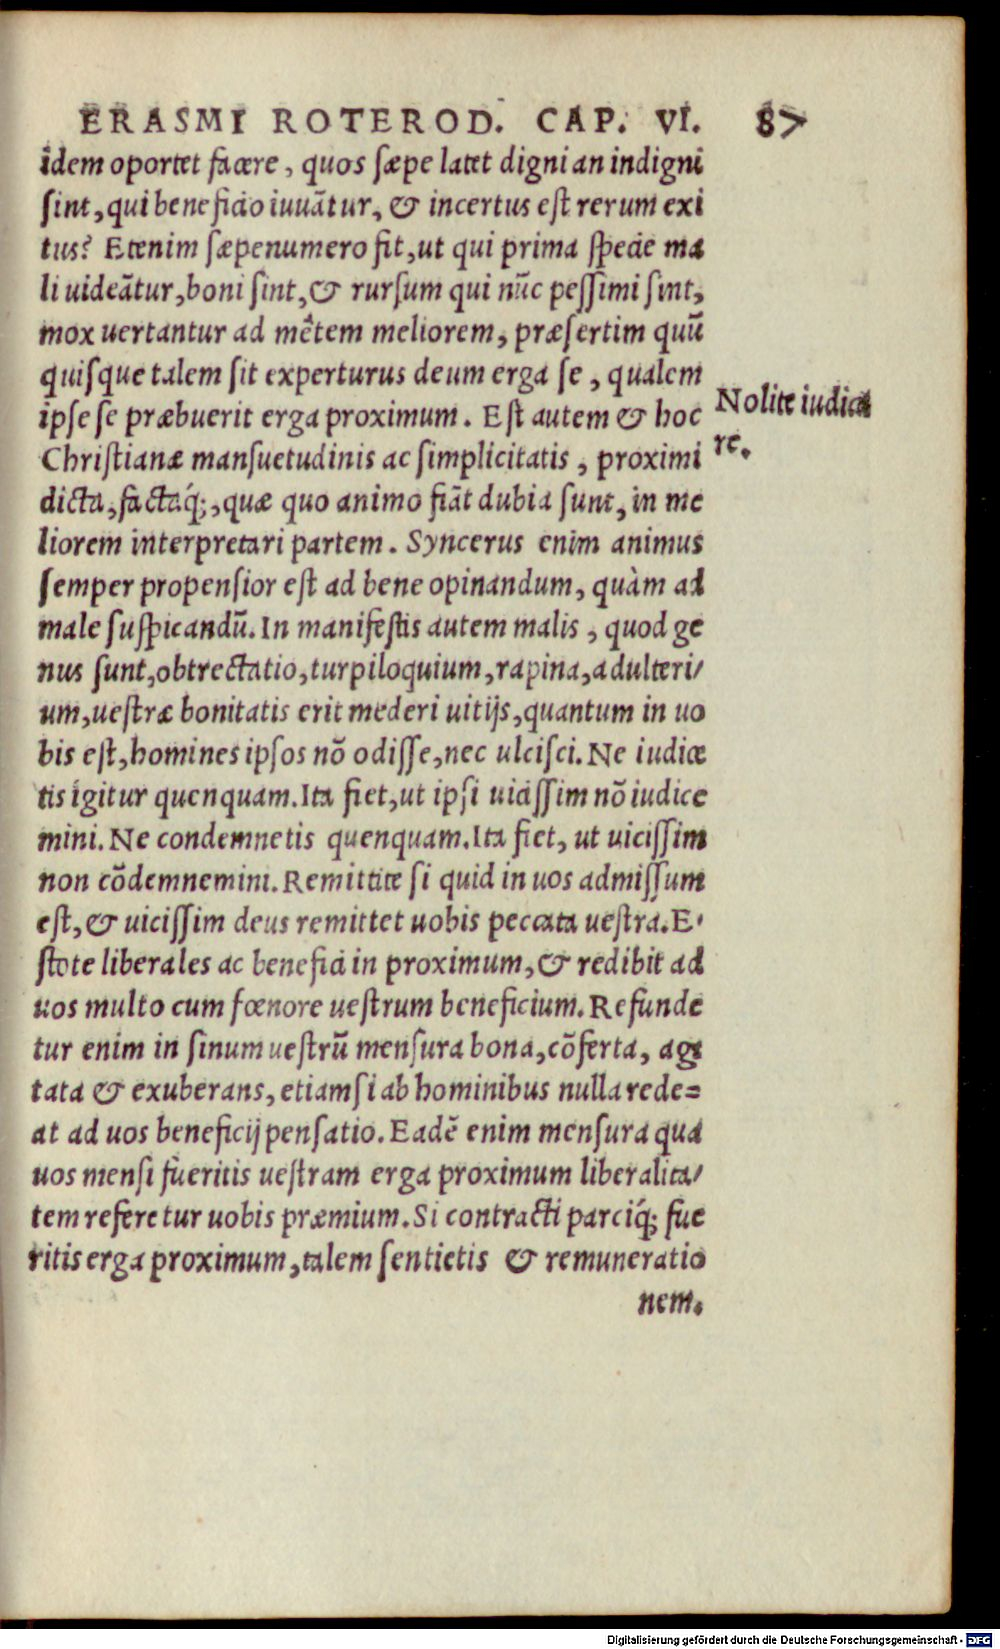 ERASMI ROTEROD. CAP. VI. 87
idem oportet facere, quos sæpe latet digni an indigni
sint, qui beneficio iuuãtur, & incertus est rerum exi
tus? Etenim sæpenumero fit, ut qui prima specie ma
li uideãtur, boni sint, & rursum qui nũc pessimi sint,
mox uertantur ad mẽtem meliorem, præsertim quũ
quisque talem sit experturus deum erga se, qualem
ipse se præbuerit erga proximum. Est autem & hoc
Nolite iudica
re.
Christianæ mansuetudinis ac simplicitatis, proximi
dicta, factaq́;, quæ quo animo fiãt dubia sunt, in me
liorem interpretari partem. Syncerus enim animus
semper propensior est ad bene opinandum, quàm ad
male suspicandũ. In manifestis autem malis, quod ge
nus sunt, obtrectatio, turpiloquium, rapina, adulteri/
um, uestræ bonitatis erit mederi uitijs, quantum in uo
bis est, homines ipsos nõ odisse, nec ulcisci. Ne iudice
tis igitur quenquam. Ita fiet, ut ipsi uicissim nõ iudice
mini. Ne condemnetis quenquam. Ita fiet, ut uicissim
non cõdemnemini. Remittite si quid in uos admissum
est, & uicissim deus remittet uobis peccata uestra. E-
stote liberales ac benefici in proximum, & redibit ad
uos multo cum fœnore uestrum beneficium. Refunde
tur enim in sinum uestrũ mensura bona, cõferta, agi
tata & exuberans, etiamsi ab hominibus nulla rede=
at ad uos beneficij pensatio. Eadẽ enim mensura qua
uos mensi fueritis uestram erga proximum liberalita/
tem referetur uobis præmium. Si contracti parciq́; fue
ritis erga proximum, talem sentietis & remuneratio
nem.
Digitalisierung gefördert durch die Deutsche Forschungsgemeinschaft - DFG